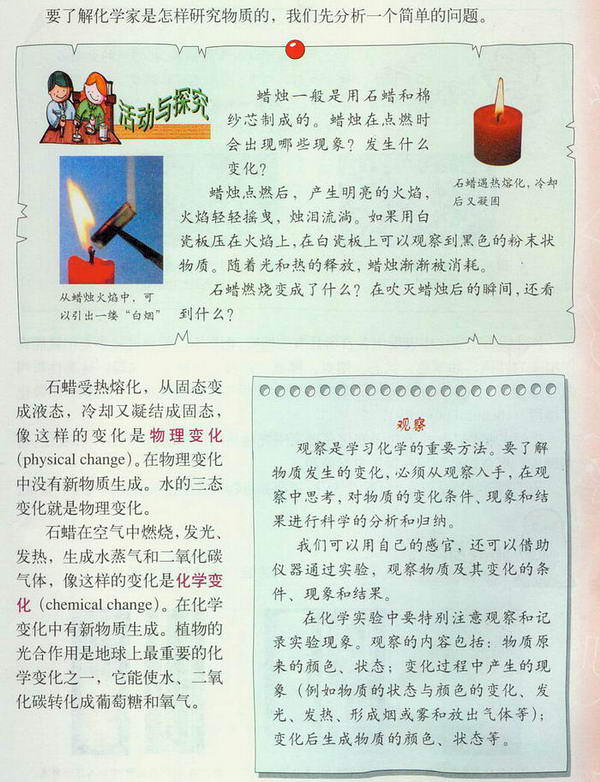 要了解化学家是怎样研究物质的，我们先分析一个简单的问题。
活动与探究
蜡烛一般是用石蜡和棉
纱芯制成的。蜡烛在点燃时
会出现哪些现象？发生什么
变化？
石蜡遇热熔化，冷却
后又凝固
蜡烛点燃后，产生明亮的火焰，
火焰轻轻摇曳，烛泪流淌。如果用白
瓷板压在火焰上，在白瓷板上可以观察到黑色的粉末状
物质。随着光和热的释放，蜡烛渐渐被消耗。
石蜡燃烧变成了什么？在吹灭蜡烛后的瞬间，还看
到什么？
从蜡烛火焰中，可
以引出一缕“白烟”
石蜡受热熔化，从固态变
成液态，冷却又凝结成固态，
像这样的变化是物理变化
(physical change)。在物理变化
中没有新物质生成。水的三态
变化就是物理变化。
石蜡在空气中燃烧，发光、
发热，生成水蒸气和二氧化碳
气体，像这样的变化是化学变
化（chemical change）。在化学
变化中有新物质生成。植物的
光合作用是地球上最重要的化
学变化之一，它能使水、二氧
化碳转化成葡萄糖和氧气。
观察
观察是学习化学的重要方法。要了解
物质发生的变化，必须从观察入手，在观
察中思考，对物质的变化条件、现象和结
果进行科学的分析和归纳。
我们可以用自己的感官，还可以借助
仪器通过实验，观察物质及其变化的条
件、现象和结果。
在化学实验中要特别注意观察和记
录实验现象。观察的内容包括：物质原
来的颜色、状态；变化过程中产生的现
象（例如物质的状态与颜色的变化、发
光、发热、形成烟或雾和放出气体等）；
变化后生成物质的颜色、状态等。